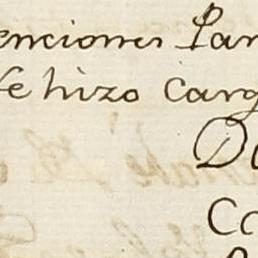 enciones Par
se hizo carg
Do
Co